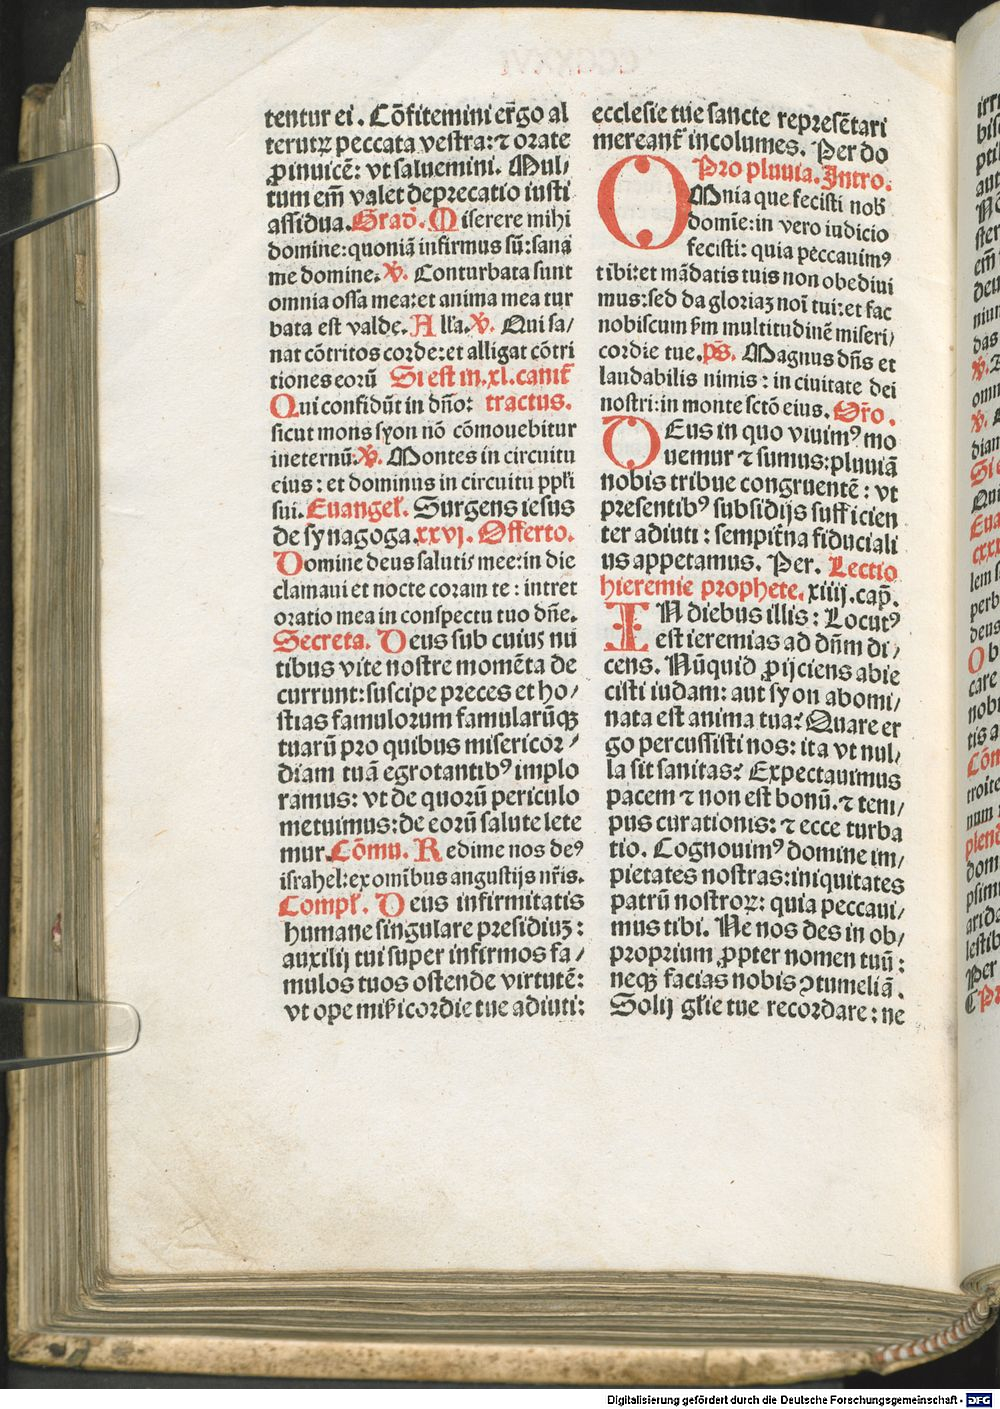 tentur ei. Cōfitemini er̄go al
terutꝝ peccata vestra: ⁊ orate
ꝓ inuicē: vt saluemini. Mul/
tum em̄ valet deprecatio iusti
assidua. Grad̄. Miserere mihi
domine: quoniā infirmus sū: sana
me domine. ℣. Conturbata sunt
omnia ossa mea: et anima mea tur
bata est valde. Alľa. ℣. Qui sa/
nat cōtritos corde: et alligat cōtri
tiones eorū Si est in .xl. canit̄
Qui confidūt in dño: tractus.
sicut mons syon nō cōmouebitur
ineternū. ℣. Montes in circuitu
eius: et dominus in circuitu ppľi
sui. Euangeľ. Surgens iesus
de synagoga. xxvj. Offerto.
Domine deus salutis mee: in die
clamaui et nocte coram te: intret
oratio mea in conspectu tuo dñe.
Secreta. Deus sub cuius nu
tibus vite nostre momēta de
currunt: suscipe preces et ho/
stias famulorum famularūqꝫ
tuarū pro quibus misericor/
diam tuā egrotantibꝰ implo
ramus: vt de quorū periculo
metuimus: de eorū salute lete
mur. Cōmu. Redime nos deꝰ
israhel: ex omībus angustijs nr̄is.
Compľ. Deus infirmitatis
humane singulare presidiuꝫ:
auxilij tui super infirmos fa/
mulos tuos ostende virtutē:
vt ope mīs̄icordie tue adiuti:
ecclesie tue sancte represētari
mereant̄ incolumes. Per do
Pro pluuia. Intro.
OMnia que fecisti nob̄
domīe: in vero iudicio
fecisti: quia peccauimꝰ
tibi: et mādatis tuis non obediui
mus: sed da gloriaꝫ noī tui: et fac
nobiscum s̄m multitudinē miseri/
cordie tue. p̄s. Magnus dñs et
laudabilis nimis: in ciuitate dei
nostri: in monte sctō eius. Or̄o.
DEus in quo viuimꝰ mo
uemur ⁊ sumus: pluuiā
nobis tribue congruentē: vt
presentibꝰ subsidijs sufficien
ter adiuti: sempit̄na fiduciali
us appetamus. Per. Lectio
hieremie prophete. xiiij. cap̄.
IN diebus illis: Locutꝰ
est ieremias ad dn̄m di/
cens. Nūquid ꝓijciens abie
cisti iudam: aut syon abomi/
nata est anima tua? Quare er
go percussisti nos: ita vt nul/
la sit sanitas? Expectauimus
pacem ⁊ non est bonū. ⁊ tem/
pus curationis: ⁊ ecce turba
tio. Cognouimꝰ domine im/
pietates nostras: iniquitates
patrū nostroꝝ: quia peccaui/
mus tibi. Ne nos des in ob/
proprium ꝓpter nomen tuū:
neqꝫ facias nobis ꝯtumeliā.
Solij gľie tue recordare: ne
Digitalisierung gefördert durch die Deutsche Forschungsgemeinschaft - DFG